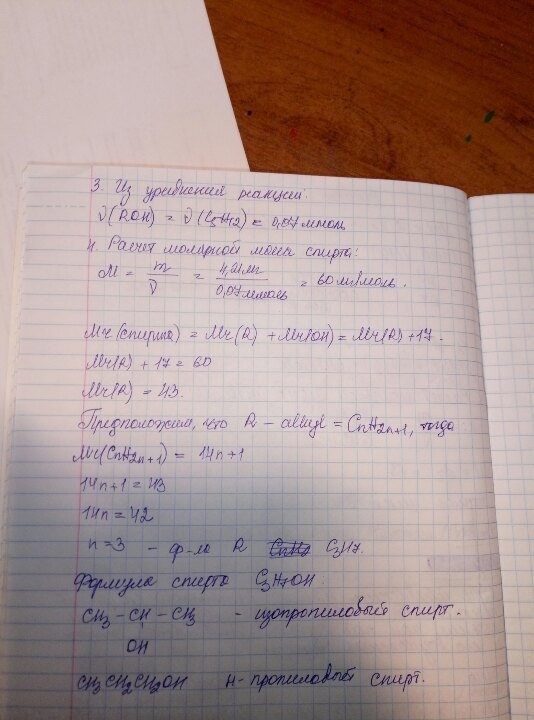 3. Из уравнения реакции:
ν(ROH) = ν(C3H2) = 0,07 ммоль
4. Расчет молярной массы спирта:
M = m/ν = 4,2 мг/0,07 ммоль = 60 мг/ммоль.
Mr(спирта) = Mr(R) + Mr(OH) = Mr(R) + 17.
Mr(R) + 17 = 60
Mr(R) = 43.
Предположим, что R - alkyl = CnH2n+1, тогда
Mr(CnH2n+1) = 14n+1
14n+1 = 43
14n = 42
n = 3 - ф-ла R C3H7.
Формула спирта C3H7OH:
CH3 - CH - CH3 - изопропиловый спирт.
OH
CH3CH2CH2OH н-пропиловый спирт.